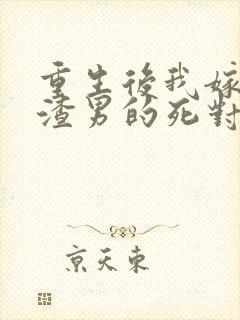 重生後我嫁
渣男的死對
京天東